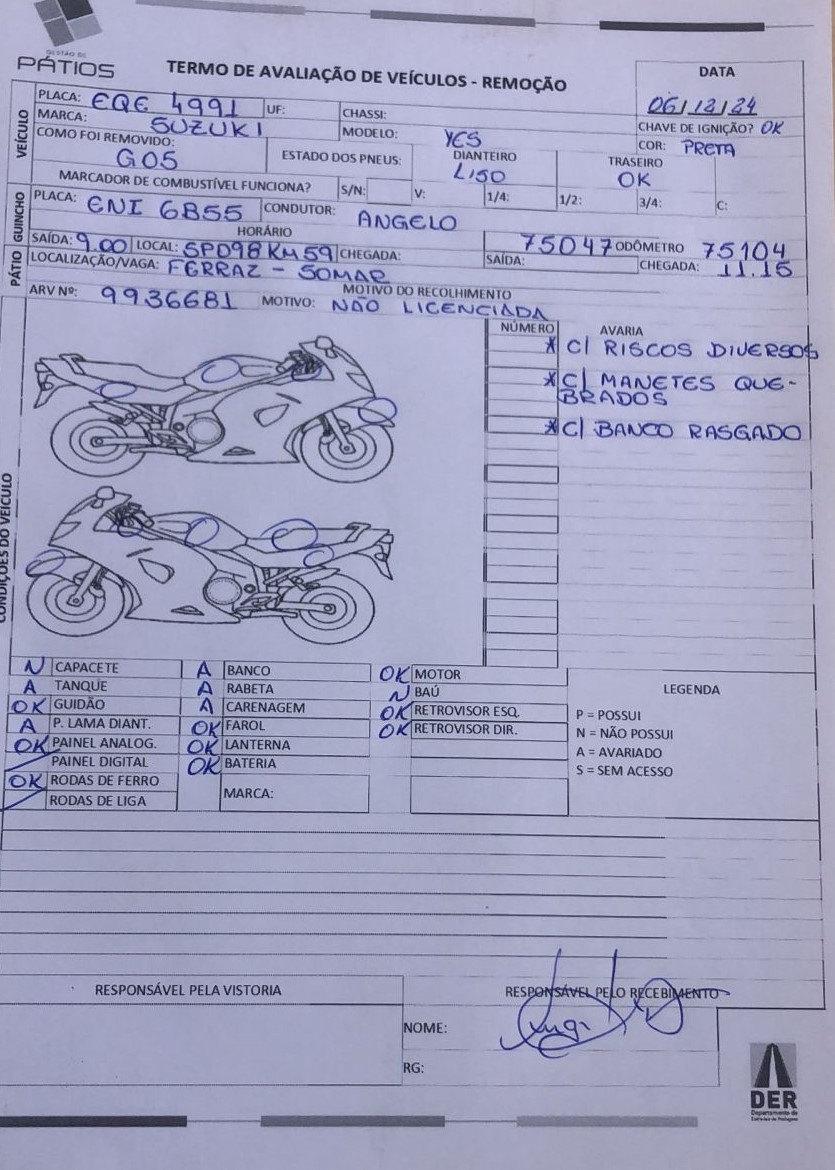 GESTÃO DE
PÁTIOS
TERMO DE AVALIAÇÃO DE VEÍCULOS - REMOÇÃO
DATA
06/12/24
VEÍCULO
PLACA: EQE 4991 UF: CHASSI:
CHAVE DE IGNIÇÃO? OK
MARCA: SUZUKI MODELO: YES
COR: PRETA
COMO FOI REMOVIDO: G05 ESTADO DOS PNEUS: DIANTEIRO LISO TRASEIRO OK
MARCADOR DE COMBUSTÍVEL FUNCIONA? S/N: V: 1/4: 1/2: 3/4: C:
GUINCHO
PLACA: ENI 6B55 CONDUTOR: ANGELO
HORÁRIO 75047 ODÔMETRO 75104
SAÍDA: 9.00 LOCAL: SPD98 KM 59 CHEGADA: SAÍDA: CHEGADA: 11.15
PÁTIO
LOCALIZAÇÃO/VAGA: FERRAZ - SOMAR
MOTIVO DO RECOLHIMENTO
ARV Nº: 9936681 MOTIVO: NÃO LICENCIADA
CONDIÇÕES DO VEÍCULO
NÚMERO AVARIA
* C/ RISCOS DIVERSOS
* C/ MANETES QUE-
BRADOS
* C/ BANCO RASGADO
N CAPACETE A BANCO OK MOTOR
A TANQUE A RABETA N BAÚ
OK GUIDÃO A CARENAGEM OK RETROVISOR ESQ.
A P. LAMA DIANT. OK FAROL OK RETROVISOR DIR.
OK PAINEL ANALOG. OK LANTERNA
PAINEL DIGITAL OK BATERIA
OK RODAS DE FERRO MARCA:
RODAS DE LIGA
LEGENDA
P = POSSUI
N = NÃO POSSUI
A = AVARIADO
S = SEM ACESSO
RESPONSÁVEL PELA VISTORIA RESPONSÁVEL PELO RECEBIMENTO
NOME:
RG:
DER
Departamento de
Estradas de Rodagem